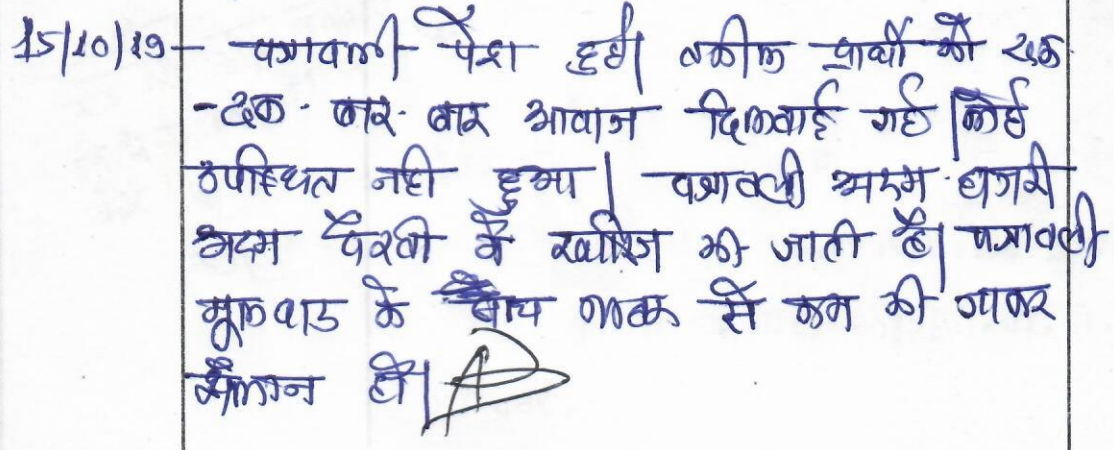 15/10/19 - पत्रावली पेश हुई। वकील प्रार्थी को एक
-एक बार-बार आवाज दिलवाई गई। कोई
उपस्थित नहीं हुआ। पत्रावली अदम हाजरी
अदम पैरवी में खारिज की जाती है। पत्रावली
मूलवाद के साथ नत्थी से कम की जाकर
संलग्न हो।